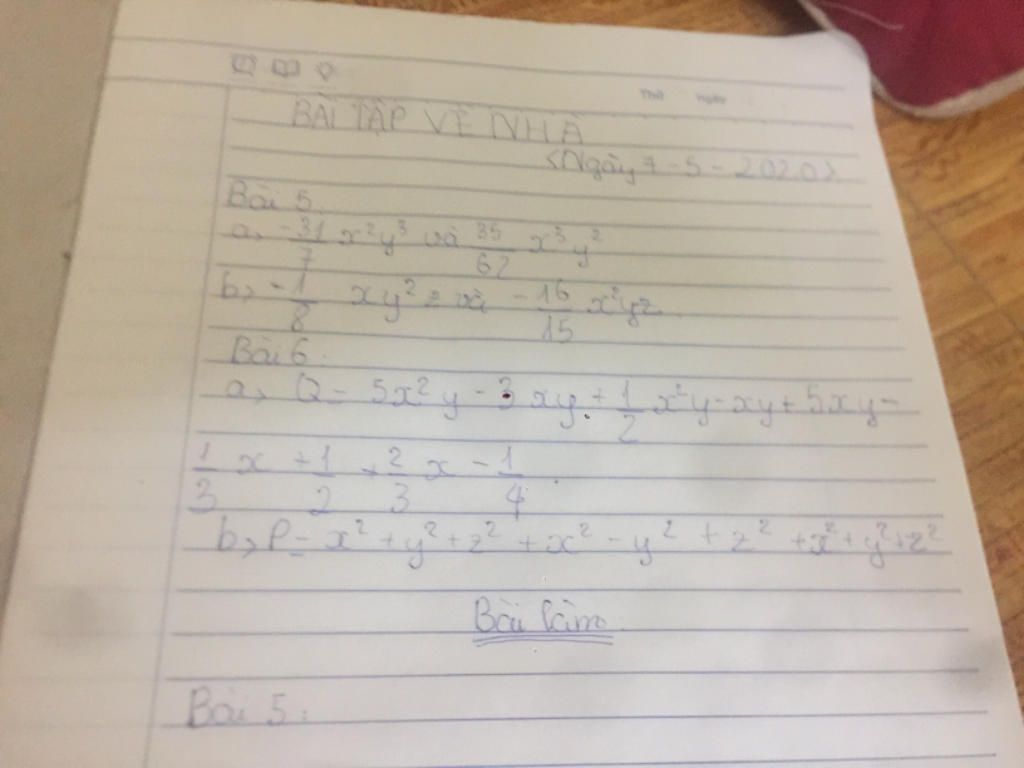 Thứ ngày
BÀI TẬP VỀ NHÀ
<Ngày 7-5-2020>
Bài 5
a, -31/7 x²y³ và 35/62 x³y²
b, -1/8 xy²z và -16/15 x²yz
Bài 6:
a, Q = 5x²y - 3xy + 1/2 x²y - xy + 5xy -
1/3 x + 1/2 + 2/3 x - 1/4
b, P = x² + y² + z² + x² - y² + z² + x² + y² + z²
Bài làm
Bài 5: